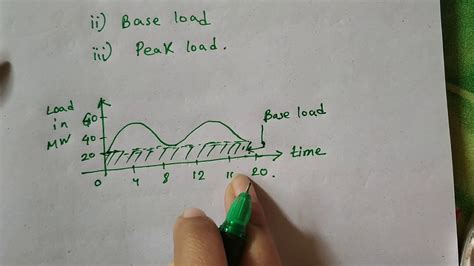 ii) Base load
iii) Peak load.
Load
in
MW
60
40
20
Base load
time
0 4 8 12 16 20.